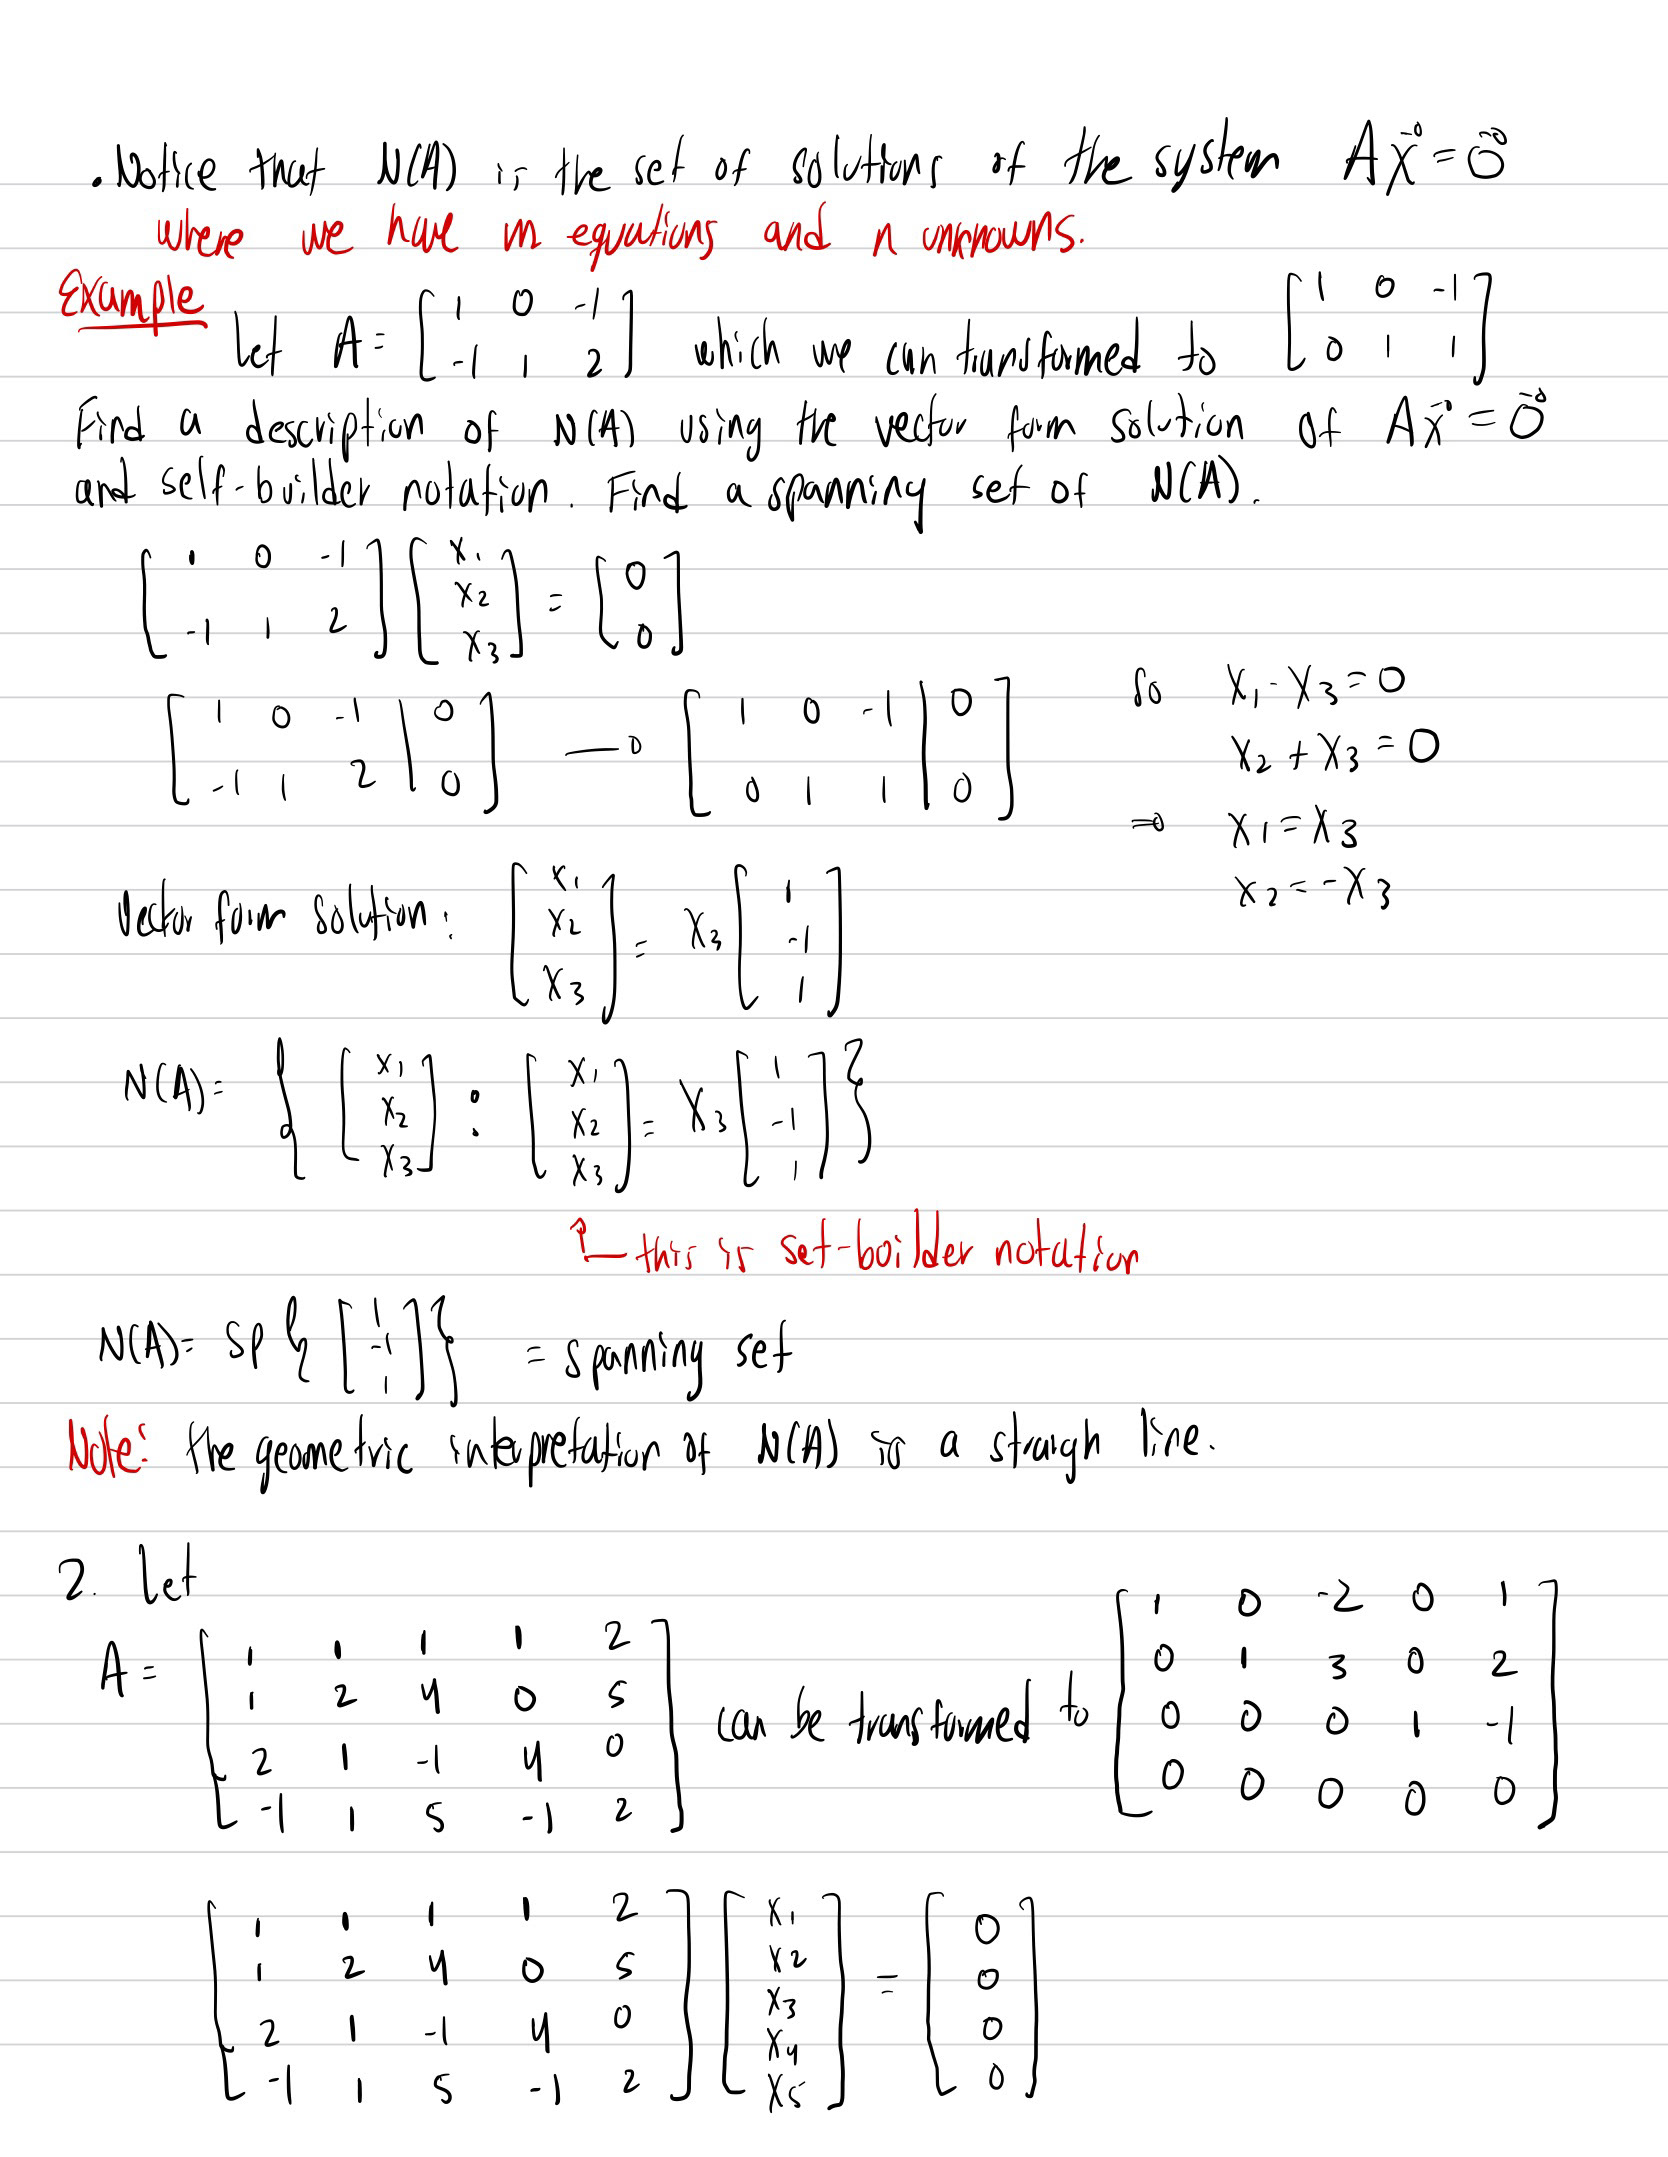 . Notice that N(A) is the set of solutions of the system Ax⃗ = 0⃗
where we have m equations and n unknowns.
Example Let A = [1 0 -1; -1 1 2] which we can transformed to [1 0 -1; 0 1 1]
Find a description of N(A) using the vector form solution of Ax⃗ = 0⃗
and self-builder notation. Find a spanning set of N(A).
[1 0 -1; -1 1 2] [x₁; x₂; x₃] = [0; 0]
[1 0 -1 | 0; -1 1 2 | 0] → [1 0 -1 | 0; 0 1 1 | 0]
so x₁ - x₃ = 0
x₂ + x₃ = 0
⇒ x₁ = x₃
x₂ = -x₃
Vector form solution: [x₁; x₂; x₃] = x₃ [1; -1; 1]
N(A) = { [x₁; x₂; x₃] : [x₁; x₂; x₃] = x₃ [1; -1; 1] }
↑ this is set-builder notation
N(A) = Sp { [1; -1; 1] } = spanning set
Note: the geometric interpretation of N(A) is a straigh line.
2. Let
A = [1 1 1 1 2; 1 2 4 0 5; 2 1 -1 4 0; -1 1 5 -1 2] can be transformed to [1 0 -2 0 1; 0 1 3 0 2; 0 0 0 1 -1; 0 0 0 0 0]
[1 1 1 1 2; 1 2 4 0 5; 2 1 -1 4 0; -1 1 5 -1 2] [x₁; x₂; x₃; x₄; x₅] = [0; 0; 0; 0]